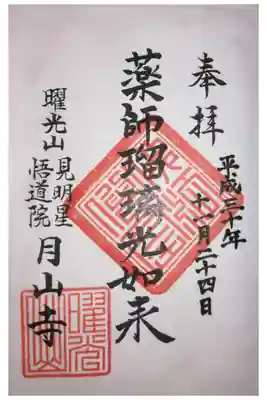 奉拝
平成三十年
十一月二十四日
薬師瑠璃光如来
曜光山
見明星
悟道院
月山寺